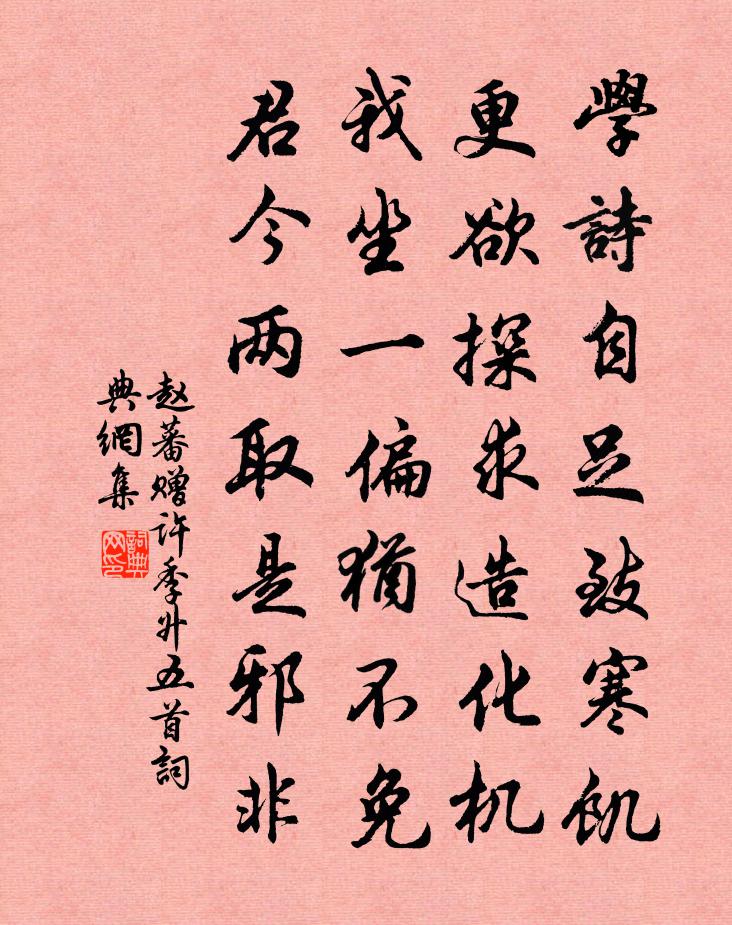 學詩自足致寒飢
更欲探求造化机
我坐一偏猶不免
君今两取是邪非
赵蕃赠许季升五首詞
典網集
詞典网印